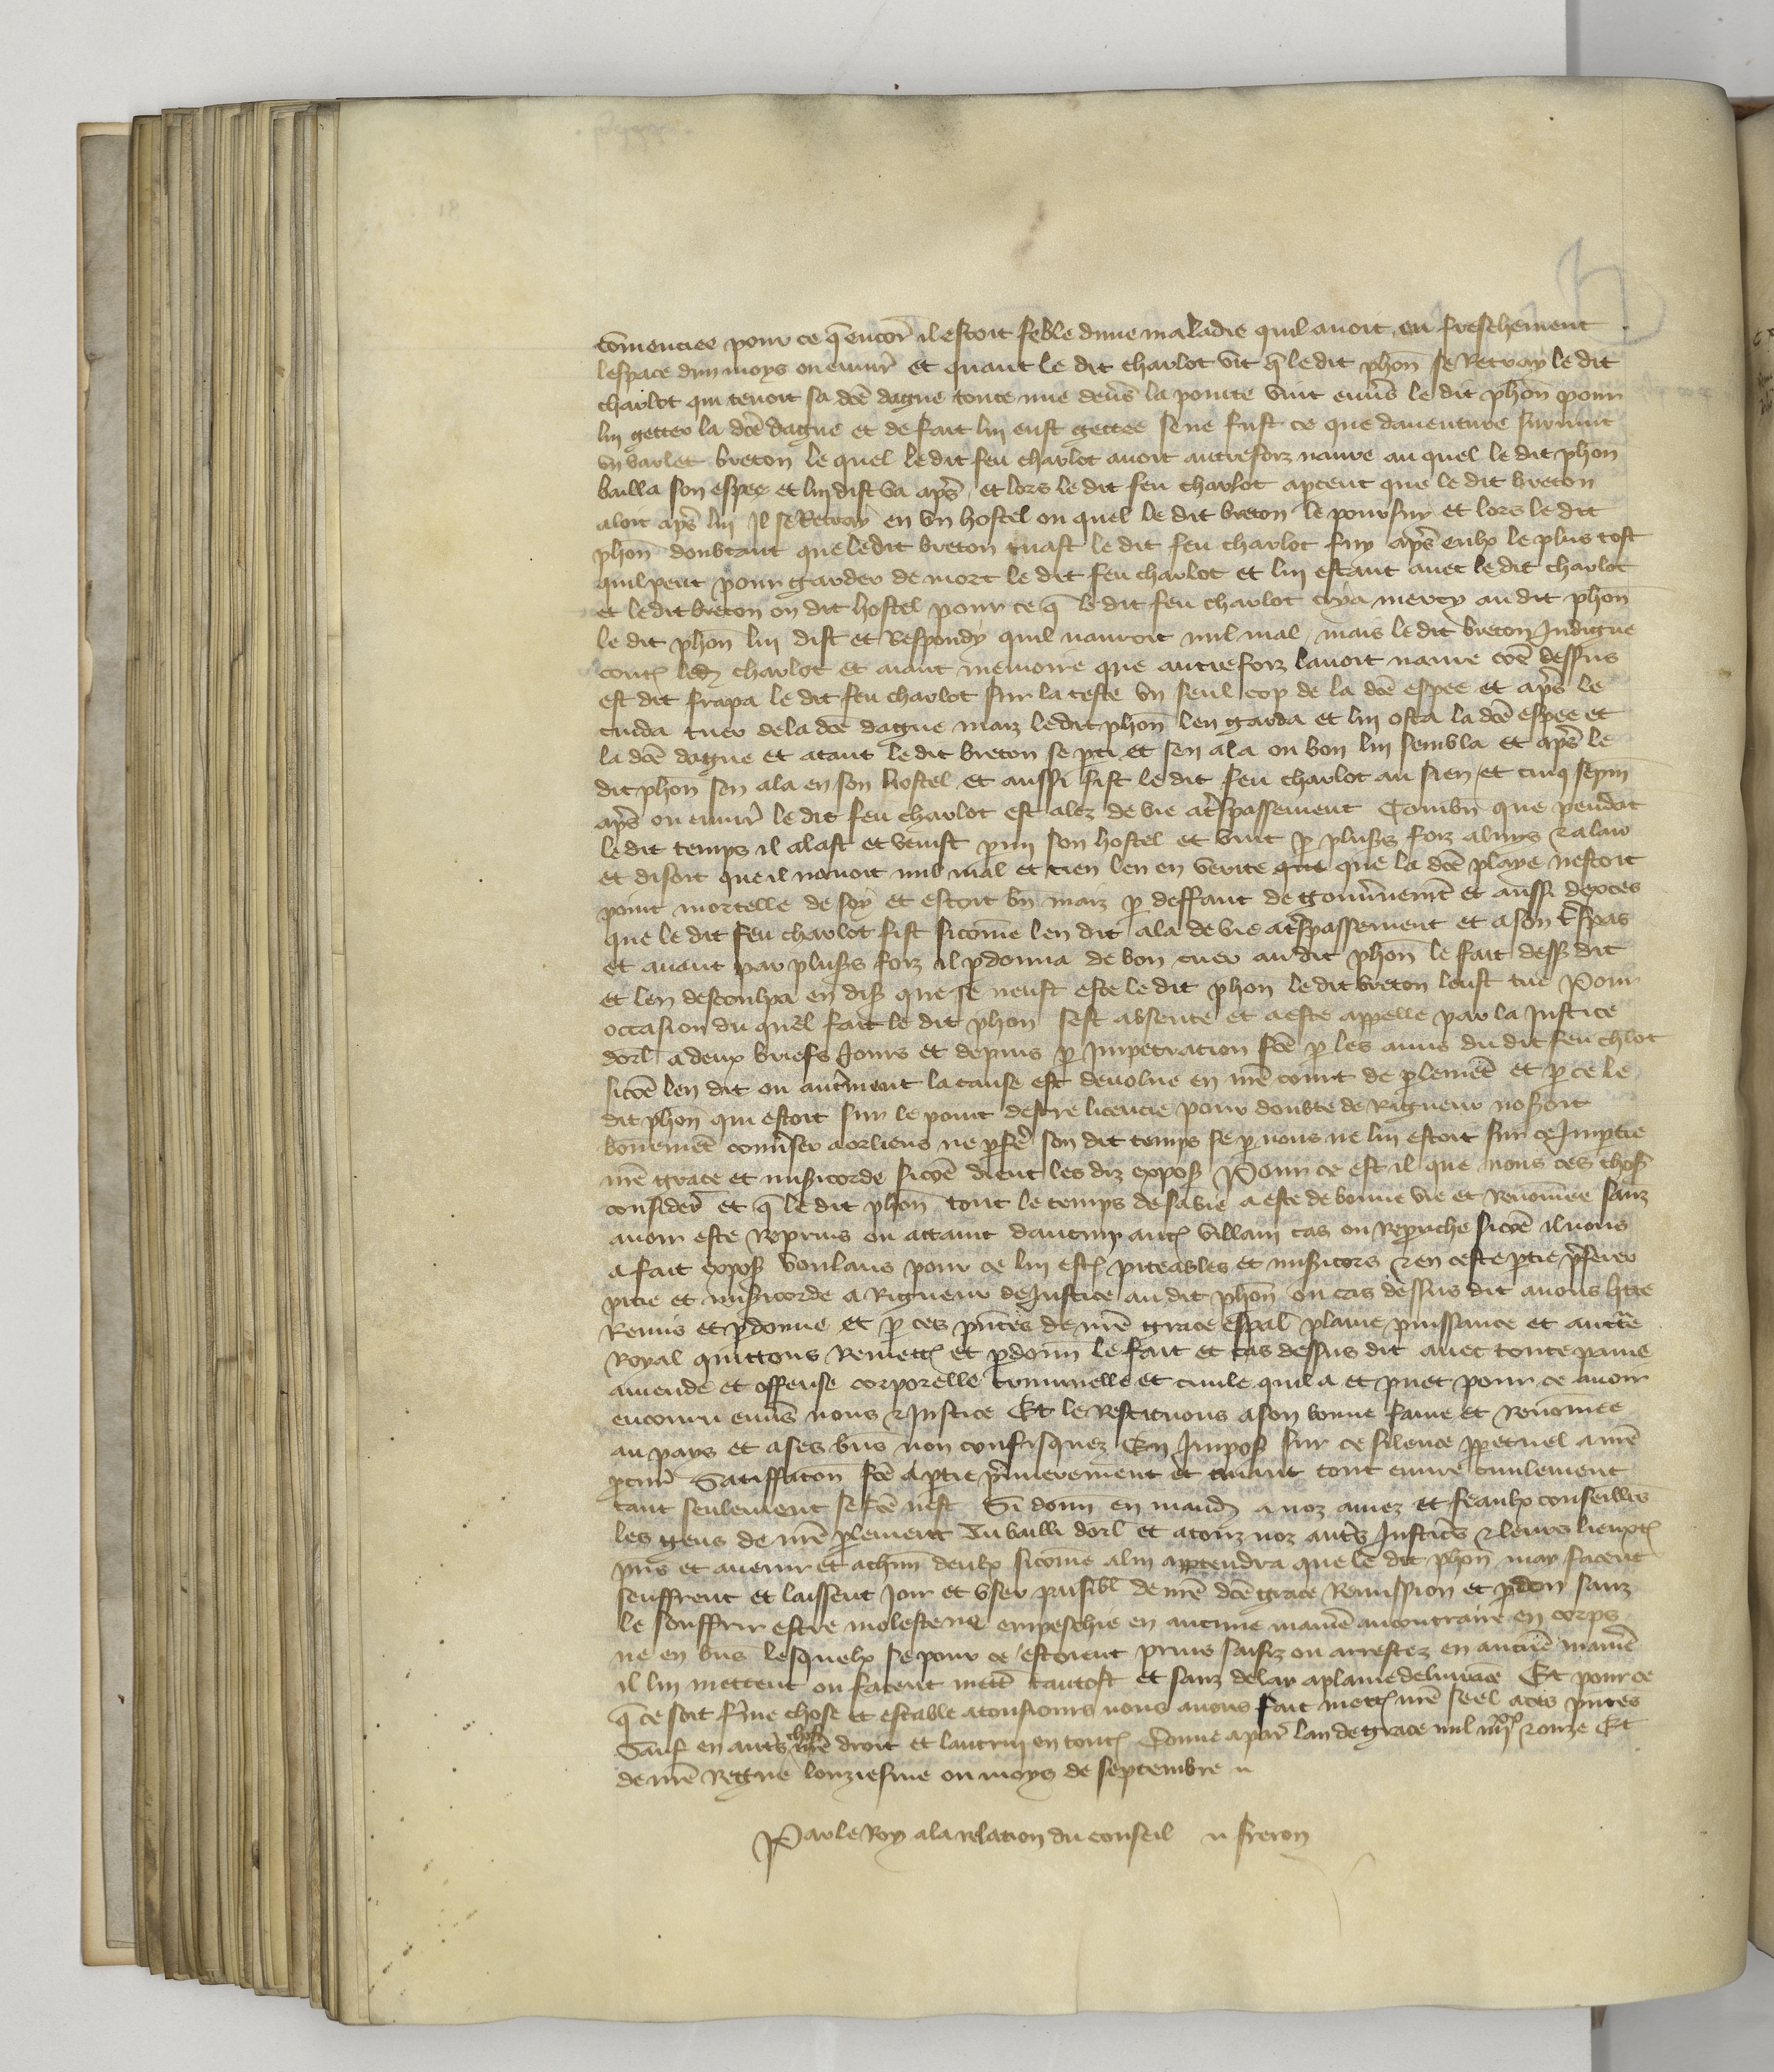 com̃enciee pour ce q̃ encor̃ il estoit feble dune maladie quil auoit eu freschement
lespace dun moys ou enuir̃ et quant le dit charlot vit q̃ le dit phõn se Retray le dit
charlot qui tenoit sa dcẽ dague toute nue deuẽs la pointe vint enuẽs le dit phõn pour
lui getter la dcẽ dague et de fait lui eust gettee se ne fust ce que dauenture suruint
vn varlet breton le quel le dit feu charlot auoit autrefoiz naure au quel le dit phõn
bailla son espee et lui dist va apr̃s et lors le dit feu charlot apceut que le dit breton
aloit apr̃s lui Il se Retray en vn hostel ou quel le dit breton le poursuy et lors le dit
phõn doubtant que le dit breton tuast le dit feu charlot fuy apr̃s eulx le plus tost
quil peut pour garder de mort le dit feu charlot et lui estant auec le dit charlot
et le dit breton ou dit hostel pour ce q̃ le dit feu charlot crya mercy au dit phõn
le dit phõn lui dist et Respondy quil nauroit nul mal mais le dit breton Indigne
contr̃ led charlot et aiant memoire que autrefoiz lauoit naure cõe dessus
est dit frapa le dit feu charlot sur la teste vn seul cop de la dcẽ espee et apr̃s le
cuida tuer de la dcẽ dague maiz le dit phõn len garda et lui osta la dcẽ espee et
la dcẽ dague et atant le dit breton se pti et sen ala ou bon lui sembla et apr̃s le
dit phõn sen ala en son hostel et aussi fist le dit feu charlot au sien et cinq sepm̃
apr̃s ou enuir̃ le dit feu charlot est alez de vie a tr̃spassement Combñ que pendãt
le dit temps il alast et venist pmi son hostel et vint p plus̃s foiz al'uys & alair
et disoit que il nauoit nul mal et tien len en verite que que la dcẽ playe nestoit
point mortelle de soy et estoit bñ maiz p deffaut de gouũnemẽt et aussi dexces
que le dit feu charlot fist sicom̃e len dit ala de vie a tr̃spassement et a son tr̃spas
et auant par plus̃s foiz il pdonna de bon cuer au dit phõn le fait dess̃ dit
et len descoulpa en dis̃ que se neust este le dit phõn le dit breton leust tue Pour
occasion du quel fait le dit phõn sest absente et a este appelle par la Justice
dorl̃ a deux briefs Jours et depuis p Impetracion fcẽ p les amis du dit feu chlot
sicõe len dit ou aut̃ment la cause est deuolue en nr̃e court de plemẽt et p ce le
dit phõn qui estoit sur le point destre licencie pour doubte de Rigueur nosoit
bon̄emẽt conũser a orliens ne pfẽ son dit temps se p nous ne lui estoit sur ce Imptie
nr̃e grace et misicorde sicõe dient les diz expos̃ Pour ce est il que nous ces chos̃
consider̃ et q̃ le dit phõn tout le temps de sa vie a este de bonne vie et Renom̃ee sanz
auoir este Reprins ou attaint daucuy autr̃ villain cas ou Reprouche sicõe il nous
a fait expos̃ Voulans pour ce lui estr̃ piteables et misicors & en ceste ptie p̃ferer
pitie et misicorde a Rigueur de Justice au dit phõn ou cas dessus dit auons htte
Remis et pdonne et p ces pñtes de nr̃e grace esp̃al plaine puissance et auctte
Royal quittons Remettõs et pdonñ le fait et cas dessus dit auec toute paine
amende et offense corporelle criminelle et ciuile quil a et puet pour ce auoir
encouru enuẽs nous & Justice Et le Restituons a son bonne fame et Renom̃ee
au pays et a ses bñs non confisquez En Impos̃ sur ce silence ppetuel a nr̃e
pcur̃ Satiffacõn fcẽ a ptie p̃mierement et auant tout euure ciuilement
tant seulement se fcẽ nest Si donñ en mand a noz amez et feaulx conseilliẽs
les gens de nr̃e plement Au bailli dorl̃ et a touz noz autr̃s Justiciẽs & leurs lieuxtẽs
pñs et auenir et a chũn deulx sicom̃e a lui apptendra que le dit phõn may facent
seuffrent et laissent Joir et vser paisibl̃ de nr̃e dcẽ grace Remission et pdon sanz
le souffrir estre moleste ne empeschie en aucune maniẽ au contraire en corps
ne en bñs lesquelx se pour ce estoient prins saisiz ou arrestez en aucune maniẽ
il lui mettent ou facent mettr̃ tantost et sanz delay a plaine deliurãce Et pour ce
q̃ ce soit fẽme chose et estable a tousiours nous auons fait mettr̃ nr̃e seel a ces pñtes
Sauf en autr̃s chos̃ nr̃e droit et lautruy en toutr̃s Donne a par̃ lan de grace mil iiijc & onze Et
de nr̃e Regne lonziesme ou moys de septembre ~
Par le Roy a la relacion du conseil ~ freron